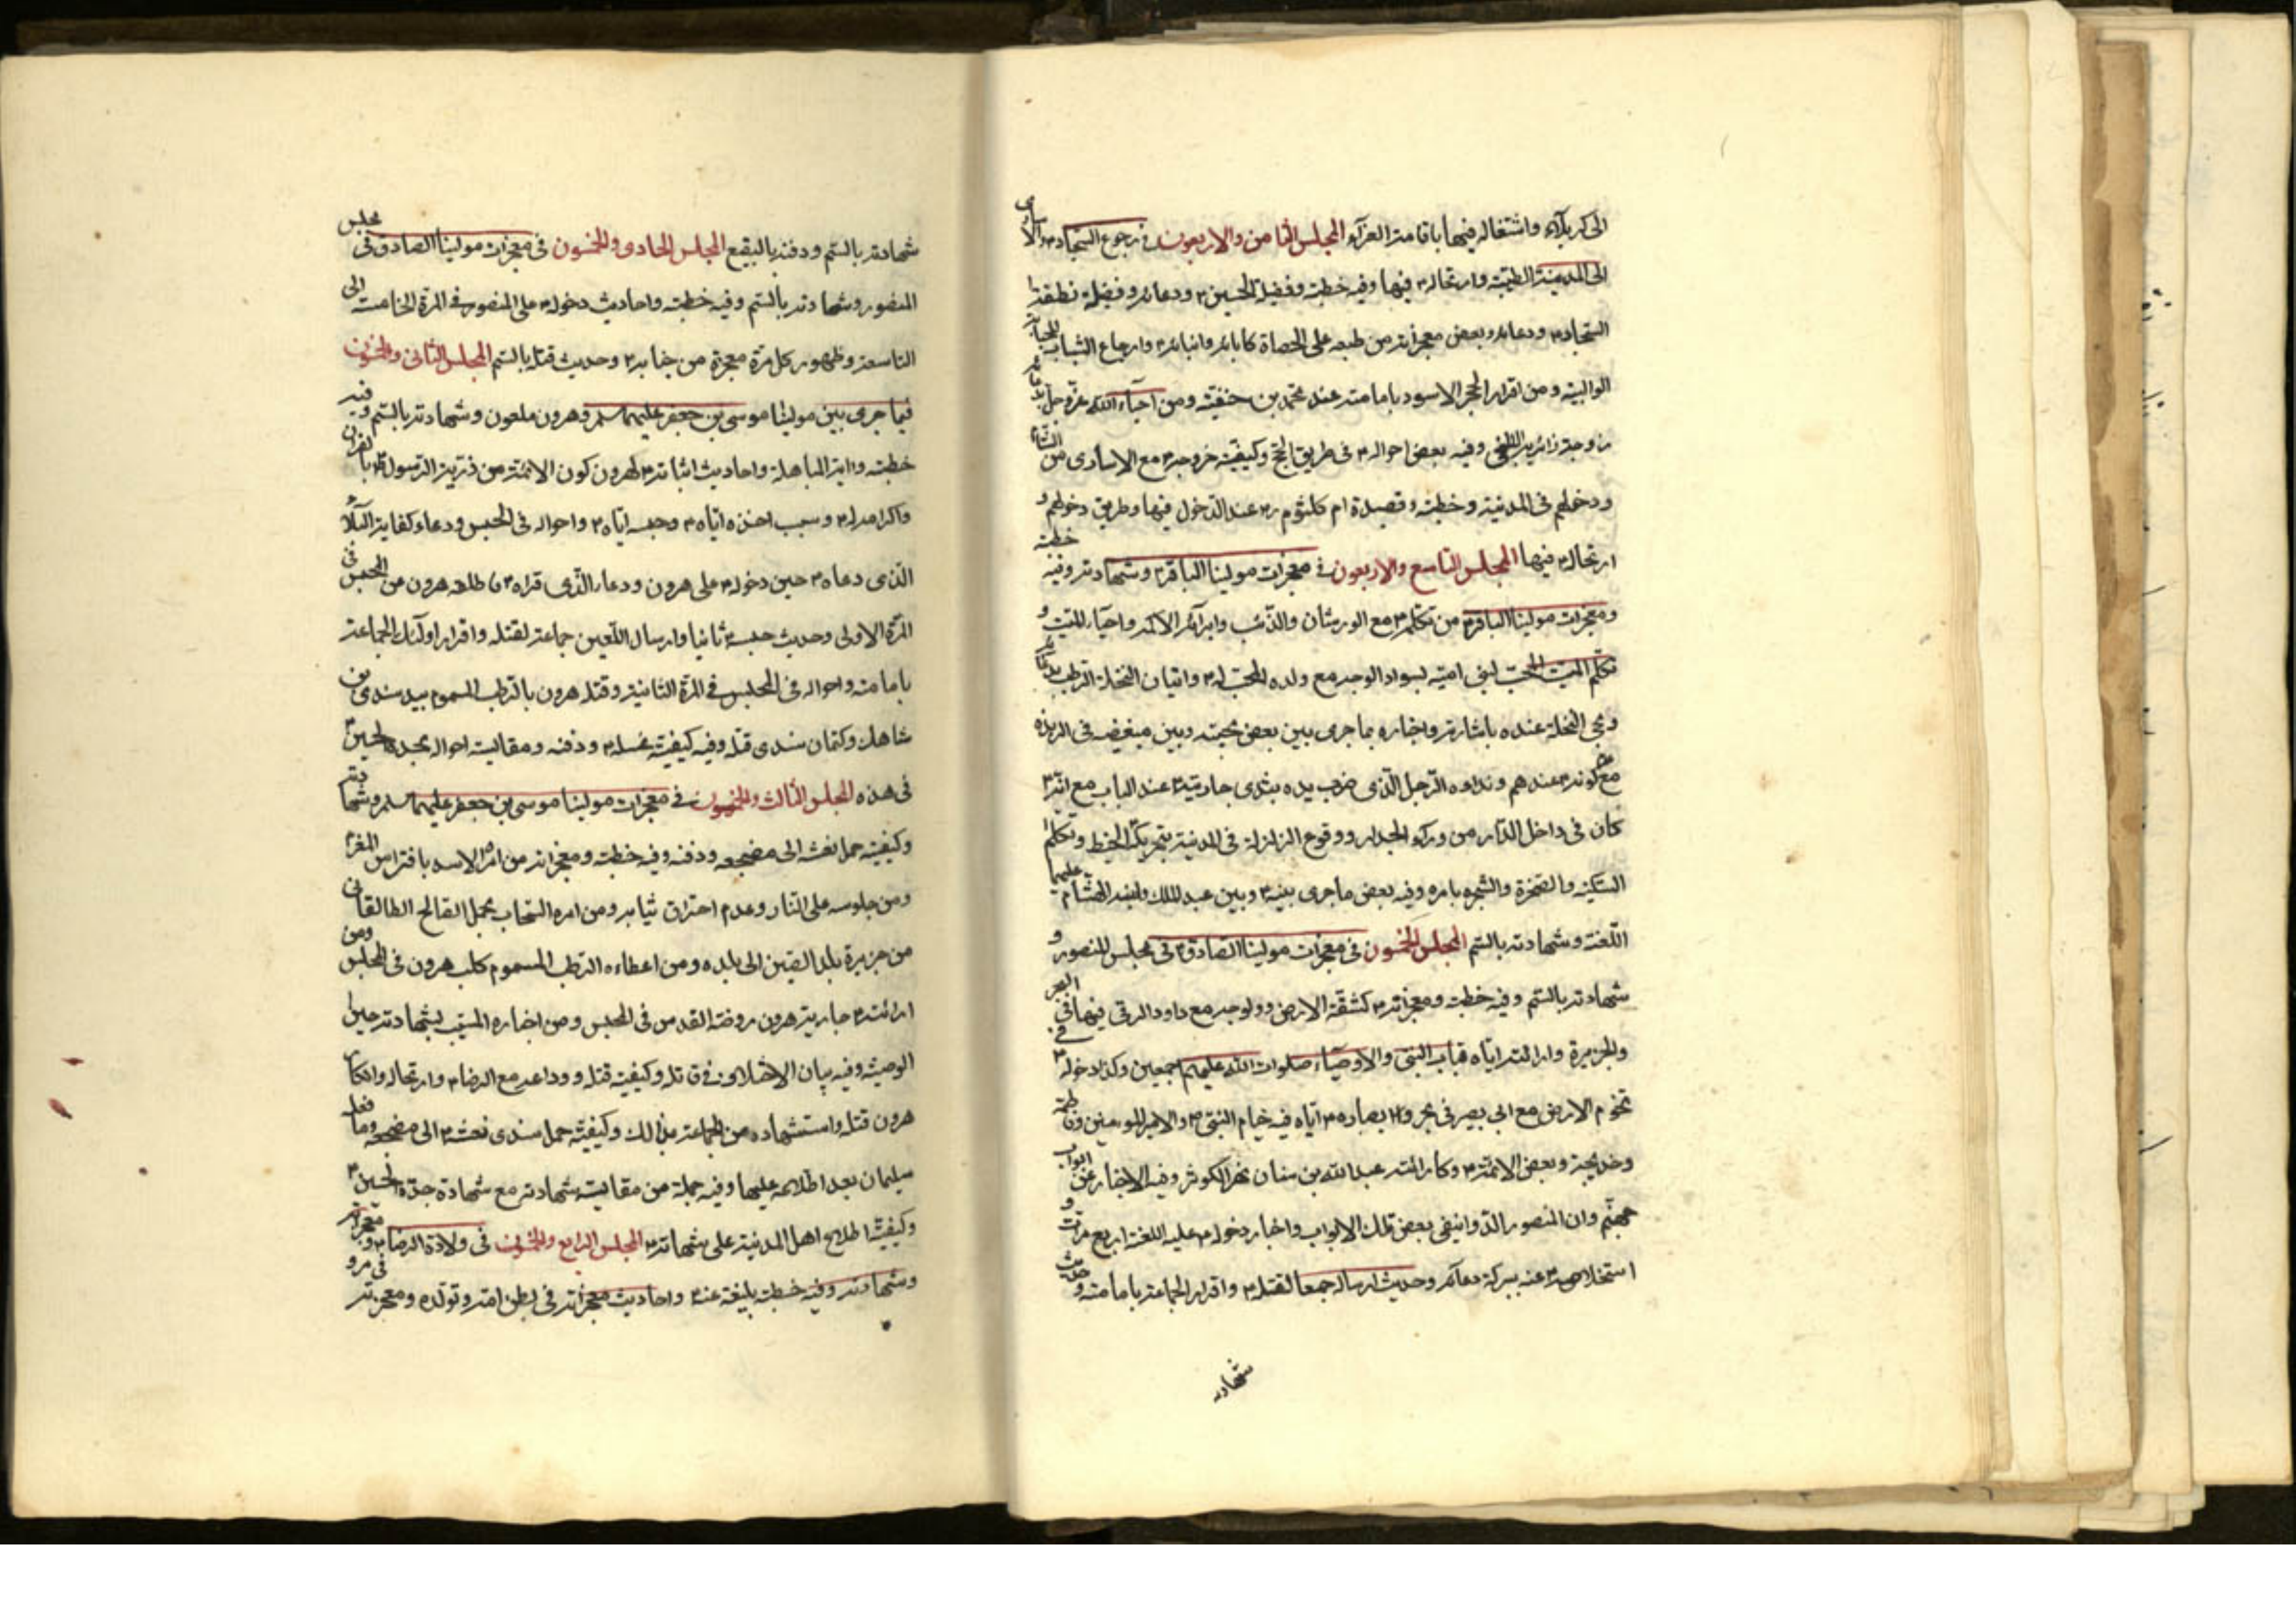 الى كربلآء واشتغاله فيها باقامة العزآء المجلس الثامن والاربعون في رجوع السجاد م والاسارى
الى المدينة الطيبة وارتحاله م فيها وفيه خطبة وفضيل الحسين م ودعائه وفضيلة نطقه
السجاد م ودعائه وبعض معجزاته من طبعه على الحصاة كآبائه وانبائه م وارجاع الشباب
الوالبية ومن اقرار الحجر الاسود بامامته عند محمد بن حنفية ومن احياء الله عزوجل بدعائه
زوجة زائره البلخى وفيه بعض احواله م فى طريق الحج وكيفية خروجه م مع الاسارى من الشام
ودخولهم فى المدينة وخطبة وقصيدة ام كلثوم م عند الدخول فيها وطريق دخولهم و
ارتحاله م فيها المجلس التاسع والاربعون في معجزات مولينا الباقر م وشهادته وفيه خطبة
ومعجزات مولينا الباقر م من تكلمه م مع الورشان والذئب وابرآئه الاكمه واحيآء الميت و
تكلم الميت المحب لبنى امية بسواد الوجه مع ولده المحب له م واتيان النخلة الرطب بدعائه
ومجى النخلة عنده باشارته واخباره بما جرى بين بعض محبيه وبين مبغضه فى
مع كونه م عندهم ونداءه الرجل الذى ضرب يده بثدى جاريته م عند الباب مع انه م
كان فى داخل الدار من ورآء الجدار ووقوع الزلزلة فى المدينة بتحريك الخيط وتكلم
السكين والصخرة والشجره بامره وفيه بعض ماجرى بينه م وبين عبد الملك وابنه هشام عليهما
اللعنة وشهادته بالسم المجلس الخمسون فى معجزات مولينا الصادق م فى مجلس المنصور و
شهادته بالسم وفيه خطبة ومعجزاته م كشقه الارض وولوجه مع داود الرقى فيها فى البحر
والجزيرة وارائته اياه قباب النبى والاوصيآء صلوات الله عليهم اجمعين وكذا دخوله م فى
تخوم الارض مع ابى بصير فى بحر وابصاره م اياه فيه خيام النبى م والامير المومنين وفاطمة
وخديجة وبعض الائمة م وكارائته عبد الله بن سنان نهر الكوثر وفيه الاخبار عن ابواب
جهنم وان المنصور الدوانيقى بعض تلك الابواب واخبار دخوله م عليه اللعنة اربع مرات و
استخلاصه م عنه ببركة دعآئه وحديث ارساله جمعا لقتله م واقرار الجماعة بامامته وحديث
شهادته
شهادته بالسم ودفنه بالبقيع المجلس الحادى والخمسون فى معجزات مولينا الصادق فى مجلس
المنصور وشهادته بالسم وفيه خطبة واحاديث دخوله م على المنصور فى المرة الخامسة الى
التاسعة وظهور كل مرة معجزة من جنابه م وحديث قتله بالسم المجلس الثانى والخمسون
فيما جرى بين مولينا موسى بن جعفر عليهما سلم وهرون ملعون وشهادته بالسم وفيه
خطبة واية المباهلة واحاديث اثباته م لهرون كون الائمة من ذرية الرسول م بالقران
واكرامه له م وسبب اخذه اياه م وحبسه اياه م واحواله فى الحبس ودعاء كفاية البلاء
الذى دعاه م حين دخوله م على هرون ودعاء الذى قراه م فاطلعه هرون من الحبس فى
المرة الاولى وحديث حبسه م ثانيا وارسال اللعين جماعة لقتله واقرار اولئك الجماعة
بامامته واحواله فى المحبس فى المرة الثانية وقتله هرون بالرطب المسموم بيد سندى بن
شاهك وكتمان سندى قتله وفيه كيفية غسله م ودفنه ومقايسة احواله بجده الحسين م
فى هذه المجلس الثالث والخمسون في معجزات مولينا موسى بن جعفر عليهما سلم وشهادته
وكيفية حمل نعشه الى مضجعه ودفنه وفيه خطبة ومعجزاته من امره الاسد بافتراس
ومن جلوسه على النار وعدم احتراق ثيابه ومن امره السحاب بحمل الصالح الطالقانى
من جزيرة بلد الصين الى بلده ومن اعطاءه الرطب المسموم كلب هرون فى المحبس ومن
ارائته م جارية هرون روضة القدس فى المحبس ومن اخباره المسيب بشهادته حين
الوصية وفيه بيان الاختلاف في قاتله وكيفية قتله ووداعه مع الرضا م وارتحاله وانكار
هرون قتله واستشهاده من الجماعة بذلك وكيفية حمل سندى نعشه م الى مضجعه وما فعله
سليمان بعد اطلاعه عليها وفيه جملة من مقايسة شهادته مع شهادة جده الحسين م
وكيفية اطلاع اهل المدينة على شهادته م المجلس الرابع والخمسون فى ولادة الرضا م ومعجزاته
وشهادته وفيه خطبة بليغة عنه م واحاديث معجزاته فى بطن امه وتولده ومعجزته فى مرو